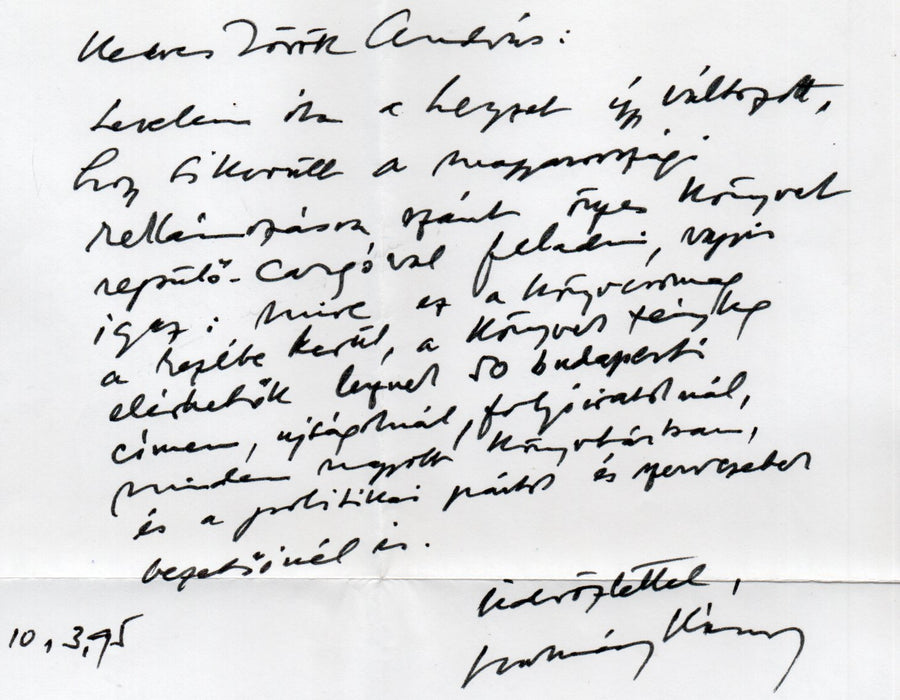 Kedves Török András:
Levelem óta a helyzet úgy változott,
hogy sikerült a magyarországi
reklámozásra szánt összes könyvet
repülő-cargóval feladni, vagyis
igaz: mire ez a könyvcsomag
a kezébe kerül, a könyvek tényleg
elérhetők lesznek 50 budapesti
címen, ujságoknál, folyóiratoknál,
minden nagyobb könyvtárban,
és a politikai pártok és szervezetek
vezetőinél is.
üdvözlettel,
10.3.95